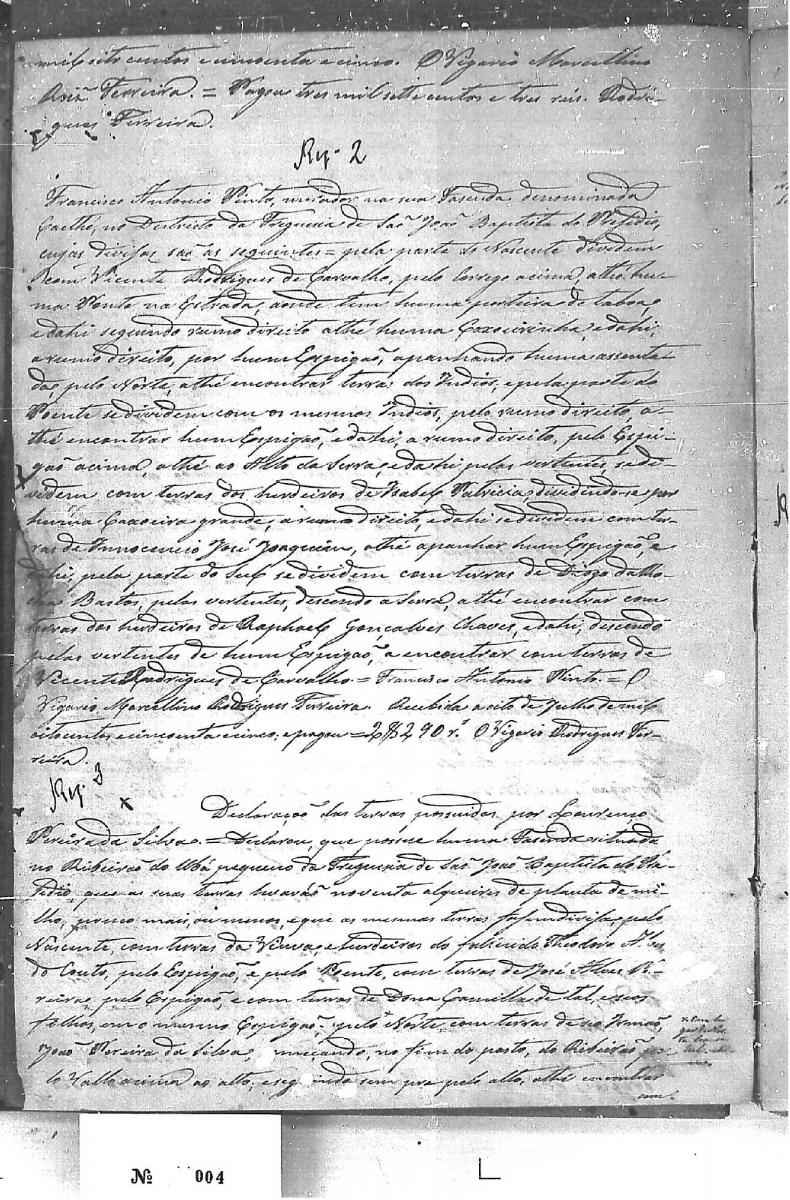 mil oito centos e cincoenta e cinco. O Vigario Marcellino
Ferreira. = Pagou tres mil sette centos e tres reis. Rodri-
gues Ferreira.
Rg. 2
Francisco Antonio Pinto, morador na sua Fasenda denominada
no Districto da Freguesia de Saõ Joaõ Baptista do Presidio,
cujas divisas saõ as seguintes = pela parte do Nascente dividem
com Vicente Rodrigues de Carvalho, pelo Corrego acima, athe hu-
ma Ponte na Estrada, aonde tem huma porteira de taboas,
e dahi seguindo rumo direito athé huma Caxoeirinha, e dahi,
a rumo direito, por hum Espigaõ, apanhando huma assenta-
da, pelo Norte, athé encontrar terras dos Indios, e pela parte do
Poente se dividem com os mesmos Indios, pelo rumo direito, a-
thé encontrar hum Espigaõ, e dahi, a rumo direito, pelo Espi-
gaõ acima, athé ao Alto da Serra, e dahi pelas vertentes, se di-
videm com terras dos herdeiros de Isabel Patricia, dividindo-se por
huma Caxoeira grande, a rumo direito, e dahi se dividem com ter-
ras de Innocencio José Joaquim, athé apanhar hum Espigaõ, e
dahi, pela parte do Sul, se dividem com terras de Diogo da Ro-
cha Bastos, pelas vertentes, descendo a Serra, athé encontrar com
terras dos herdeiros de Raphael Gonçalves Chaves, e dahi, descendo
pelas vertentes de hum Espigaõ, a encontrar com terras de
Vicente Rodrigues de Carvalho = Francisco Antonio Pinto. = O
Vigario Marcellino Rodrigues Ferreira. Recebida a oito de Julho de mil
oitocentos e cincoenta e cinco; e pagou = 2$290 rˢ. O Vigario Rodrigues Fer-
reira.
Rg. 3 x
Declaraçaõ das terras possuidas por Lourenço
Pereira da Silva. = Declarou, que possue huma Fasenda situada
no Ribeiraõ do Ubá pequeno da Freguesia de Saõ Joaõ Baptista do Pre-
sidio, que as suas terras levaraõ noventa alqueires de planta de mi-
lho, pouco mais, ou menos, e que as mesmas terras fasem divisa, pelo
Nascente, com terras da Viuva, e herdeiros do falecido Theodoro Alves
do Couto, pelo Espigaõ, e pelo Poente, com terras de José Alves Pe-
reira, pelo Espigaõ, e com terras de Dona Camilla de tal, e seos
filhos, em o mesmo Espigaõ, pelo Norte, com terras de seo Irmaõ,
Joaõ Pereira da Silva, no fim do pasto, do Ribeiraõ pe-
lo Vallo acima ao alto, e seguindo sempre pelo alto, athé encontrar
com
Nº 004